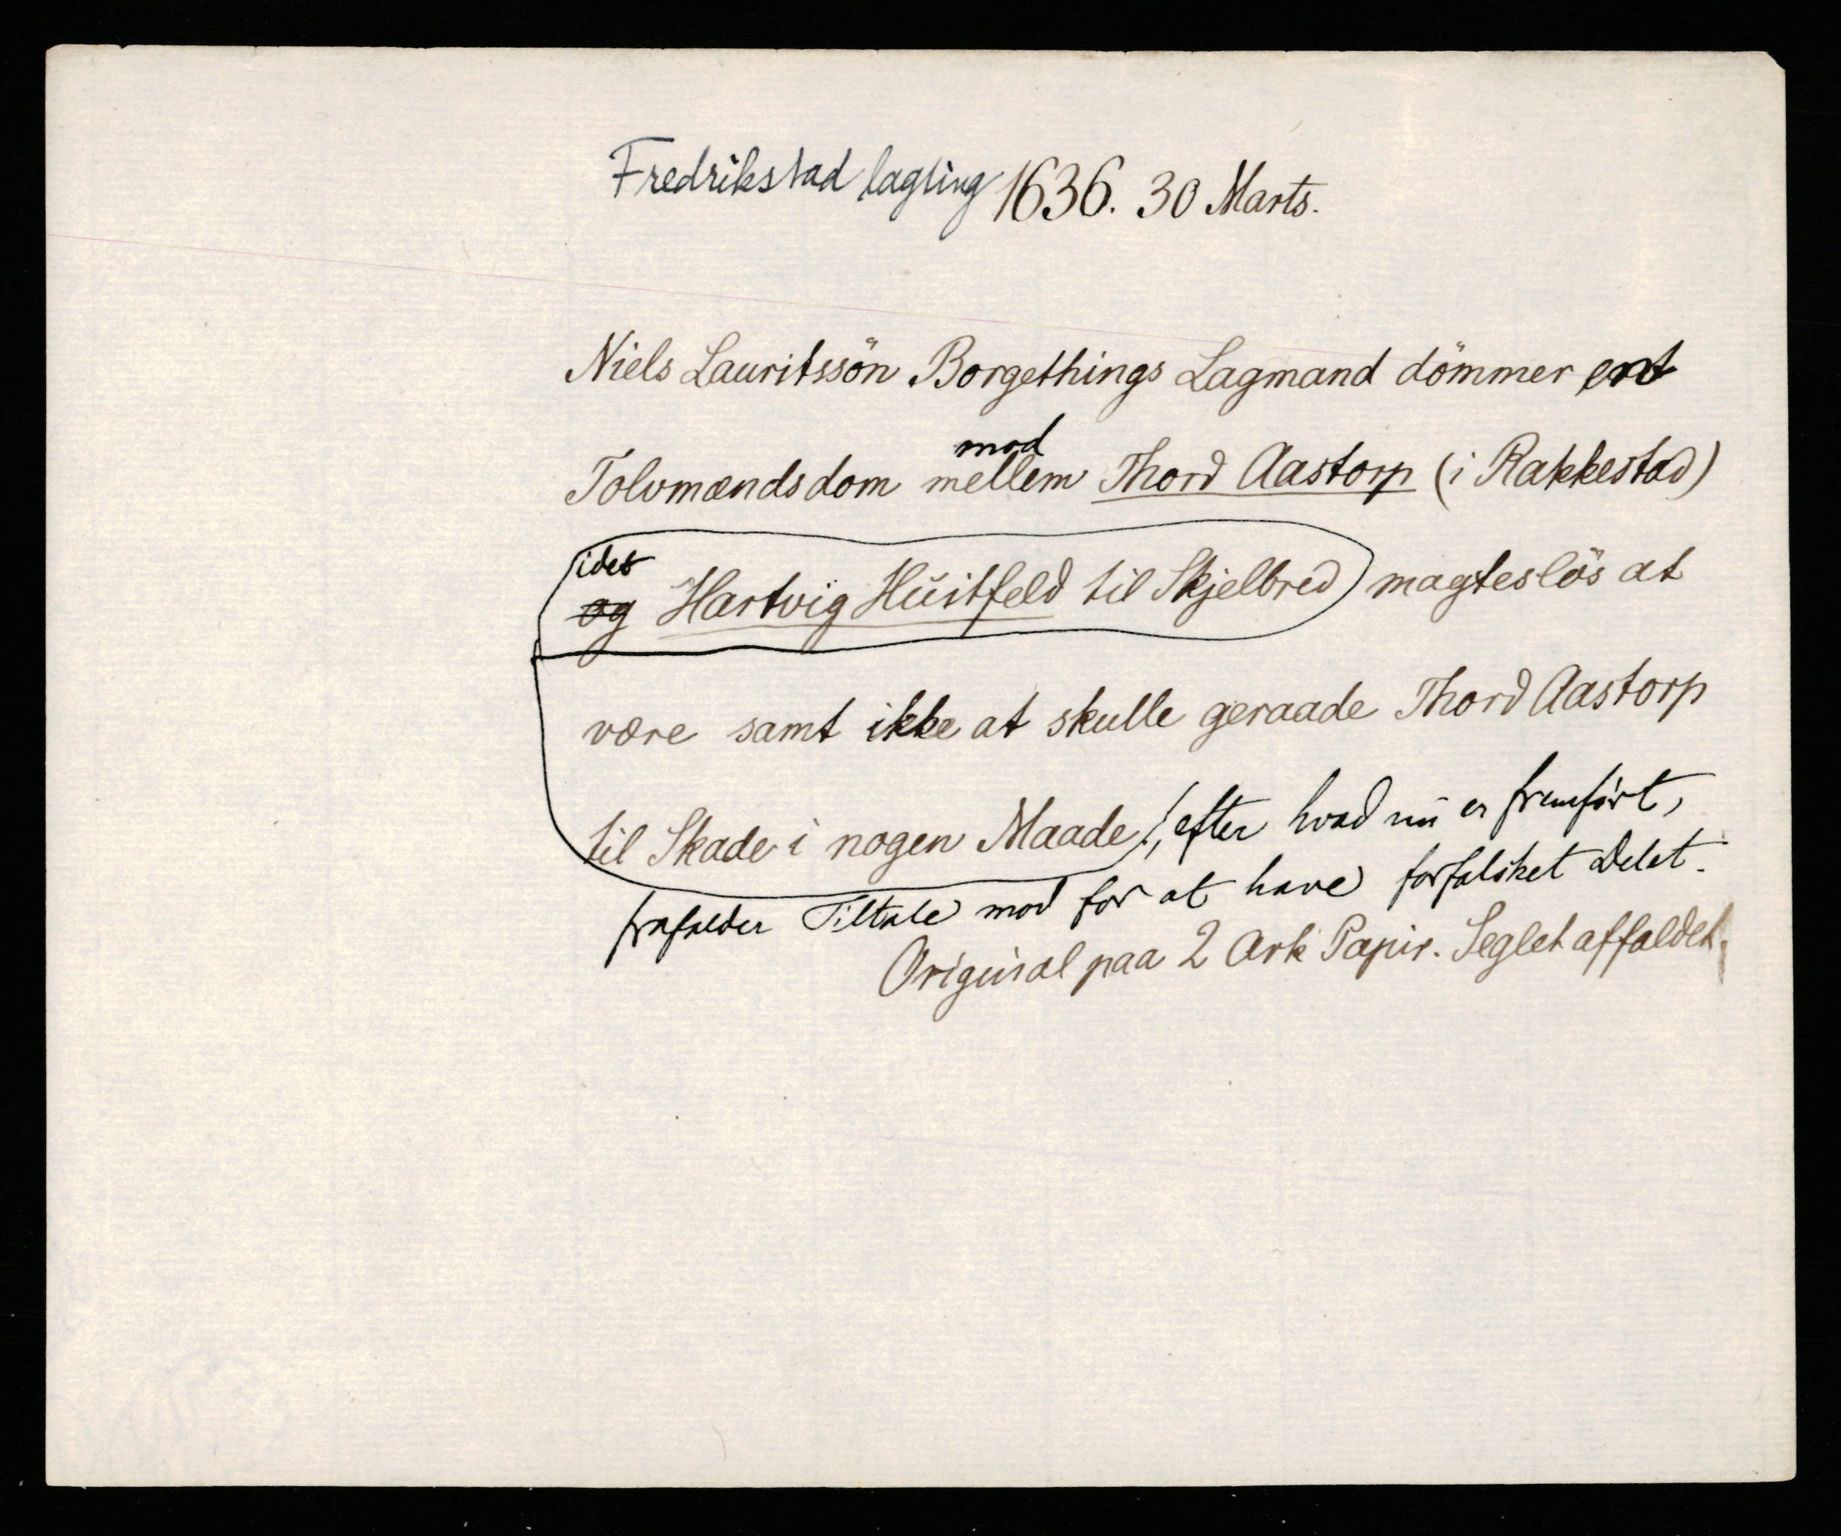 Fredrikstad lagting 1636. 30 Marts.
Niels Lauritssön Borgethings Lagmand dömmer ent
mod
Tolvmændsdom mellem Thord Aastorp (i Rakkestad)
idet
og Hartvig Huitfeld til Skjelbred magteslös at
være samt ikke at skulle geraade Thord Aastorp
til Skade i nogen Maade, efter hvad nu er fremført,
frafalder Tiltale mod for at have forfalsket Delet.
Original paa 2 Ark Papir. Seglet affaldet.